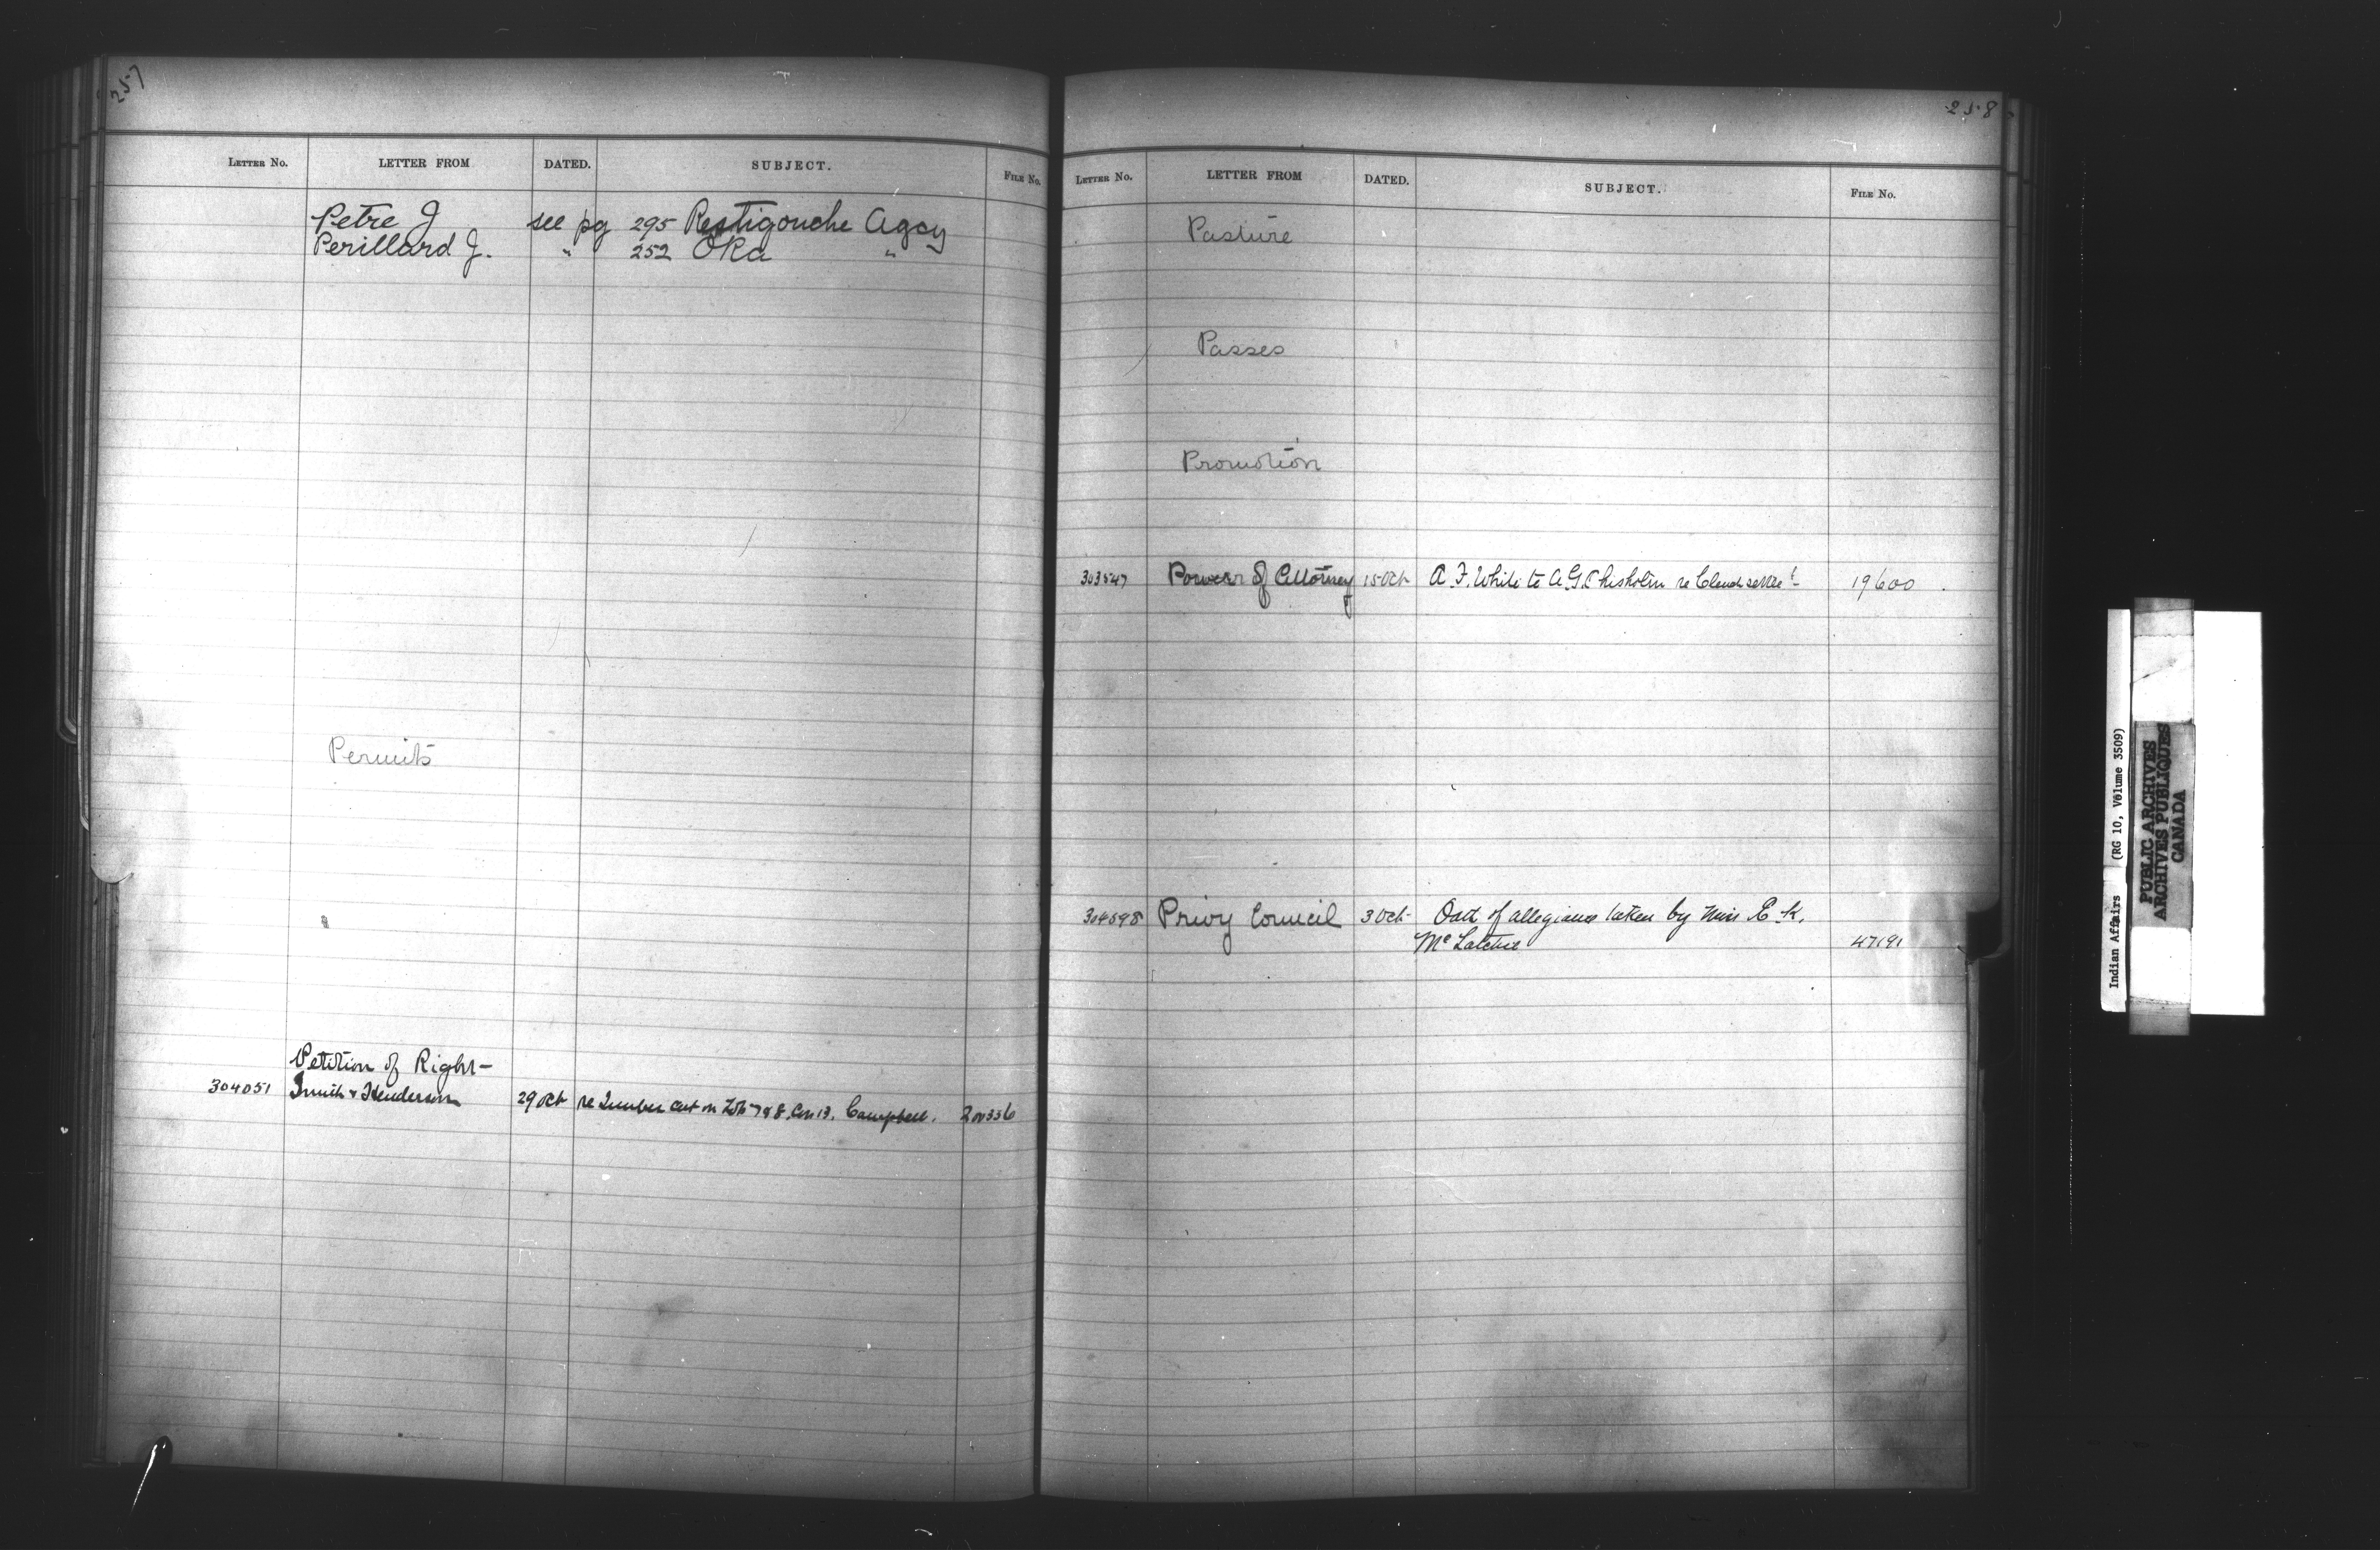 257
LETTER NO. LETTER FROM DATED. SUBJECT. FILE NO.
Petre J see pg 295 Restigouche Agcy
Perillard J. " 252 Oka "
Permits
Petition of Right-
304051 Smith & Henderson 29 Oct re Timber cut on Lots 7 & 8, Con 13, Campbell. 200336
258
LETTER NO. LETTER FROM DATED. SUBJECT. FILE NO.
Pasture
Passes
Promotion
303547 Power of Attorney 15 Oct A. F. White to A. G. Chisholm re 19600
304598 Privy Council 3 Oct- Oath of allegiance taken by Miss E. K.
McLatchie 47191
Indian Affairs (RG 10, Volume 3509)
PUBLIC ARCHIVES
ARCHIVES PUBLIQUES
CANADA